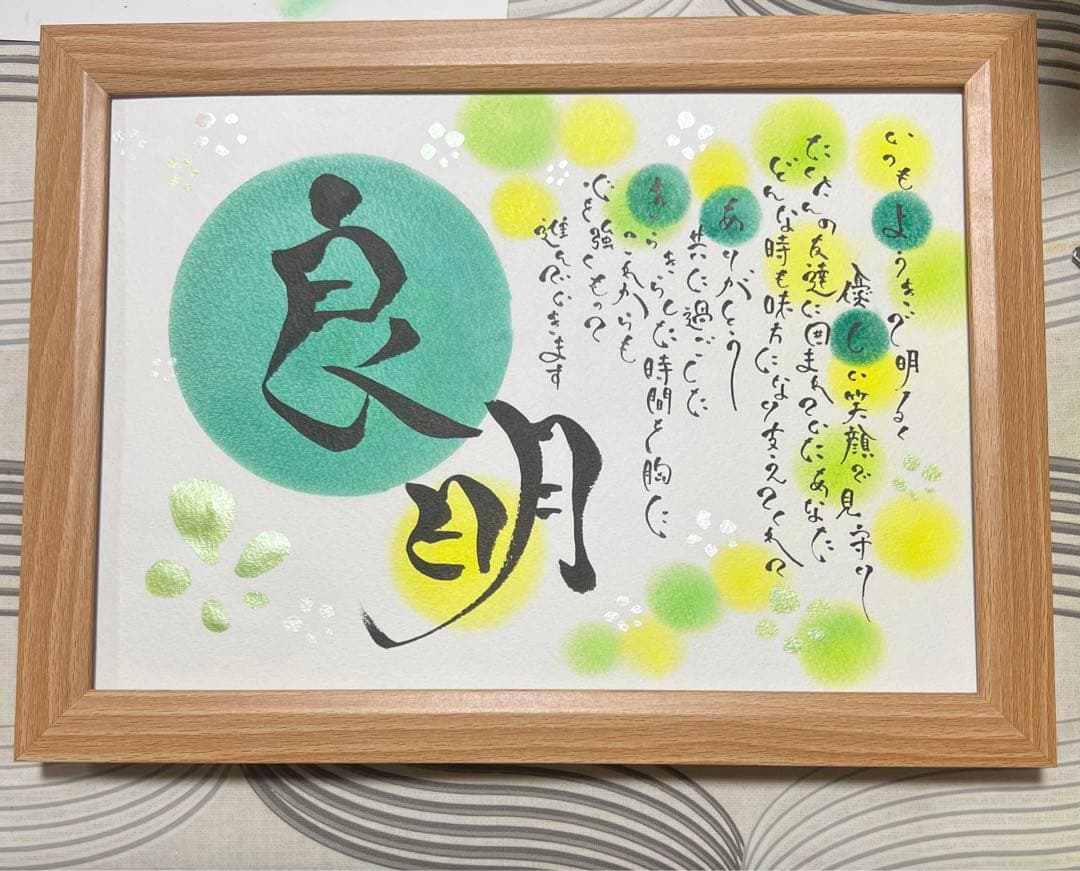 いつもようきで明るく
優しい笑顔で見守り
たくさんの友達に囲まれていたあなた
どんな時も味方になり支えてくれて
ありがとう
共に過ごした
きらきらした時間を胸に
これからも
心を強くもって
進んでいきます
良明